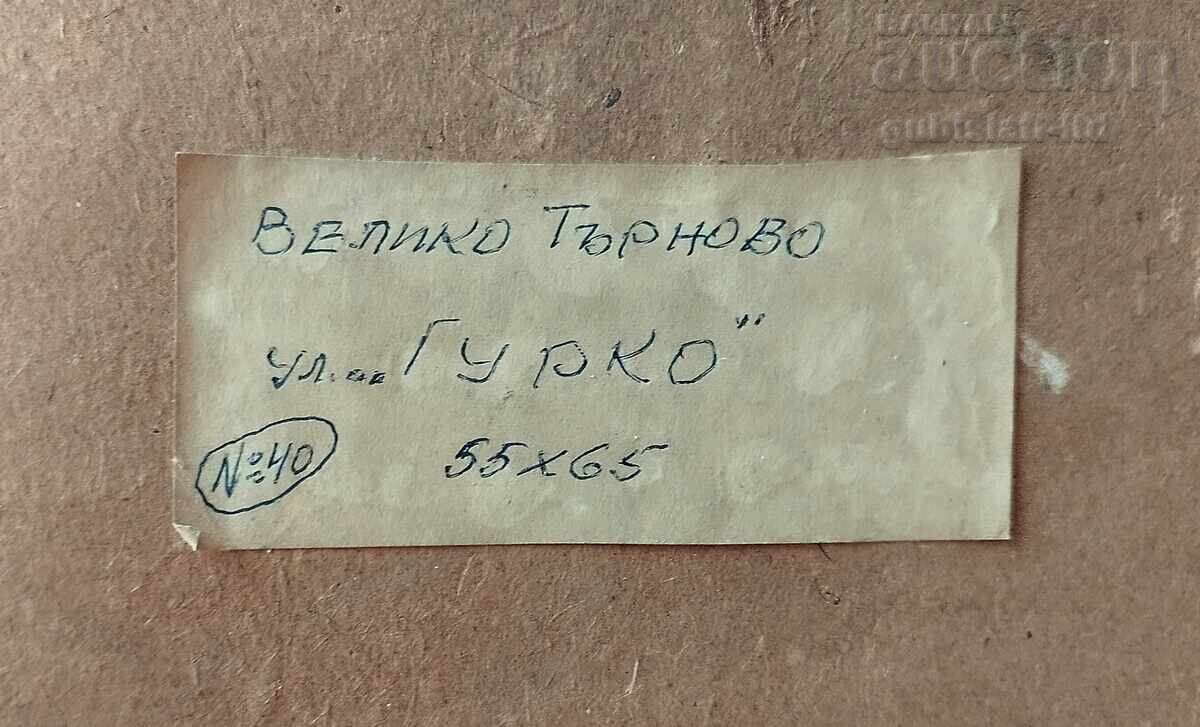 ВЕЛИКО ТЪРНОВО
ул. „ГУРКО"
№40 55x65